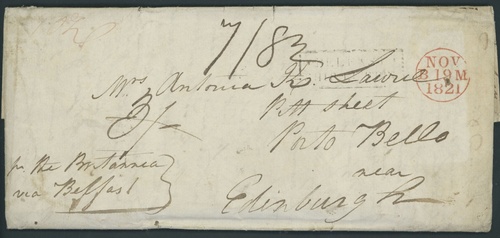 7/8 3/4
NOV
B 19 M
1821
Mrs Antonia Lawrie
3/-
Pitt Street
Porto Bello
near
Edinburgh
pr the Britannia
via Belfast